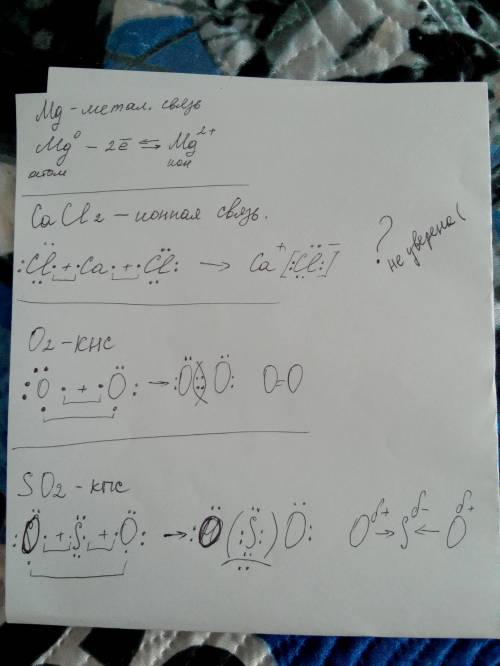 Mg - метал. связь
Mg⁰ - 2ē ⇆ Mg²⁺
атом ион
CaCl2 - ионная связь.
:Cl· + ·Ca· + ·Cl: → Ca⁺ [:Cl:]⁻
? не уверена(
O2 - кнс
:O· + ·O: → :O::O: O=O
SO2 - кпс
:O· + ·S· + ·O: → :O(:S:)O: O^δ+ → S^δ- ← O^δ+